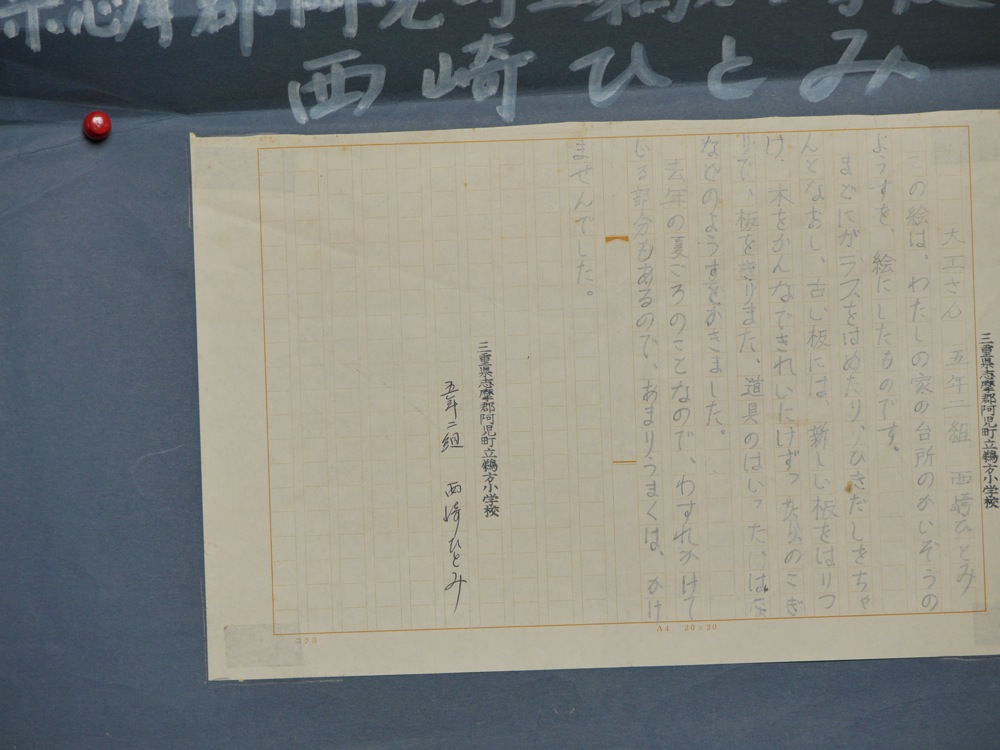 志摩郡阿児町立鵜方小学校
西崎ひとみ
三重県志摩郡阿児町立鵜方小学校
大工さん 五年二組 西崎ひとみ
この絵は、わたしの家の台所のかいぞうの
ようすを、絵にしたものです。
まどにガラスをはめたり、ひきだしをちゃ
んとなおし、古い板には、新しい板をはりつ
け、木をかんなできれいにけずったり、のこぎ
りで、板をきりまた、道具のはいった、はこ
などのようすをかきました。
去年の夏ごろのことなので、わすれかけて
いる部分もあるので、あまりうまくは、かけ
ませんでした。
三重県志摩郡阿児町立鵜方小学校
五年二組 西崎ひとみ
コクヨ
A4 20×20